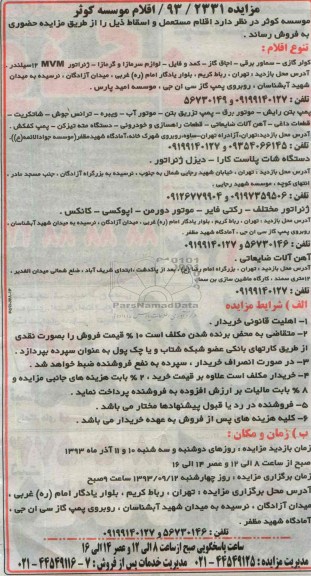 مزایده ۲۳۳۱ / ۹۳ / اقلام موسسه کوثر
موسسه کوثر در نظر دارد اقلام مستعمل و اسقاط ذیل را از طریق مزایده حضوری
به فروش رساند .
تنوع اقلام :
کولر گازی - سماور برقی - اجاق گاز - کمد و فایل - لوازم سرمازا و گرمازا - ژنراتور MVM ۱۲سیلندر -
آدرس محل بازدید : تهران ، رباط کریم ، بلوار یادگار امام (ره) غربی ، میدان آزادگان ، نرسیده به میدان
شهید آبشناسان ، روبروی پمپ گاز سی ان جی ، موسسه امید پارس .
تلفن : ۰۹۱۹۹۱۴۰۱۲۷ و ۵۶۷۳۰۱۴۹
پمپ بتن رایش - موتور برق - پمپ تزریق بتن - موتور آب - ویبره - ترانس جوش - شاتکریت -
قطعات داغی - آهن آلات ضایعاتی - قطعات راهسازی و خودرویی - دستگاه مته تیزکن - پمپ کفکش .
تلفن : ۰۹۳۵۴۰۶۶۱۴۵ و ۰۹۱۹۹۱۴۰۱۲۷
دستگاه شات پلاست کارا - دیزل ژنراتور .
آدرس محل بازدید : تهران ، خیابان شهید رجایی شمال به جنوب ، نرسیده به بزرگراه آزادگان ، جنب مسجد مادر ،
انتهای کوچه ، موسسه شهید رجایی .
تلفن : ۰۹۱۹۷۳۵۹۵۰۶ و ۰۹۱۲۶۷۷۹۹۰۴
ژنراتور مختلف - رکتی فایر - موتور دورمن - اپوکسی - کانکس .
آدرس محل بازدید : تهران ، رباط کریم ، بلوار یادگار امام (ره) غربی ، میدان آزادگان ، نرسیده به میدان شهید آبشناسان ،
روبروی پمپ گاز سی ان جی ، آمادگاه شهید مظفر .
تلفن : ۵۶۷۳۰۱۴۶ و ۰۹۱۹۹۱۴۰۱۲۷
آهن آلات ضایعاتی
تلفن : ۰۹۱۹۹۱۴۰۱۲۷
الف ) شرایط مزایده
۱- اهلیت قانونی خریدار .
۲- متقاضی به محض برنده شدن مکلف است ۱۰ % قیمت فروش را بصورت نقدی
از طریق کارتهای بانکی عضو شبکه شتاب و یا چک پول به عنوان سپرده بپردازد .
۳- در صورت انصراف خریدار ، سپرده به نفع فروشنده ضبط خواهد شد .
۴- خریدار مکلف است علاوه بر قیمت خرید ، ۴ % بابت هزینه های جانبی مزایده و
۸ % بابت مالیات بر ارزش افزوده به فروشنده پرداخت نماید .
۵- فروشنده در رد یا قبول پیشنهادها مختار می باشد .
۶- کلیه هزینه های پس از فروش به عهده خریدار می باشد .
ب ) زمان و مکان :
زمان بازدید مزایده : روزهای دوشنبه و سه شنبه ۱۰ و ۱۱ آذر ماه ۱۳۹۳
صبح از ساعت ۸ الی ۱۲ و عصر ۱۴ الی ۱۶
زمان برگزاری مزایده : روز چهارشنبه ۱۳۹۳/۰۹/۱۲ ساعت ۹صبح
آدرس محل برگزاری مزایده : تهران ، رباط کریم ، بلوار یادگار امام (ره) غربی ،
میدان آزادگان ، نرسیده به میدان شهید آبشناسان ، روبروی پمپ گاز سی ان جی ،
آمادگاه شهید مظفر .
تلفن : ۵۶۷۳۰۱۴۶ و ۰۹۱۹۹۱۴۰۱۲۷
ساعت پاسخگویی صبح از ساعت ۸ الی ۱۲ و عصر ۱۴ الی ۱۶
مدیریت مزایده : ۴۴۵۴۹۱۲۵ - ۰۲۱ مدیریت خدمات پس از فروش : ۷ - ۴۴۵۴۹۱۱۶ - ۰۲۱